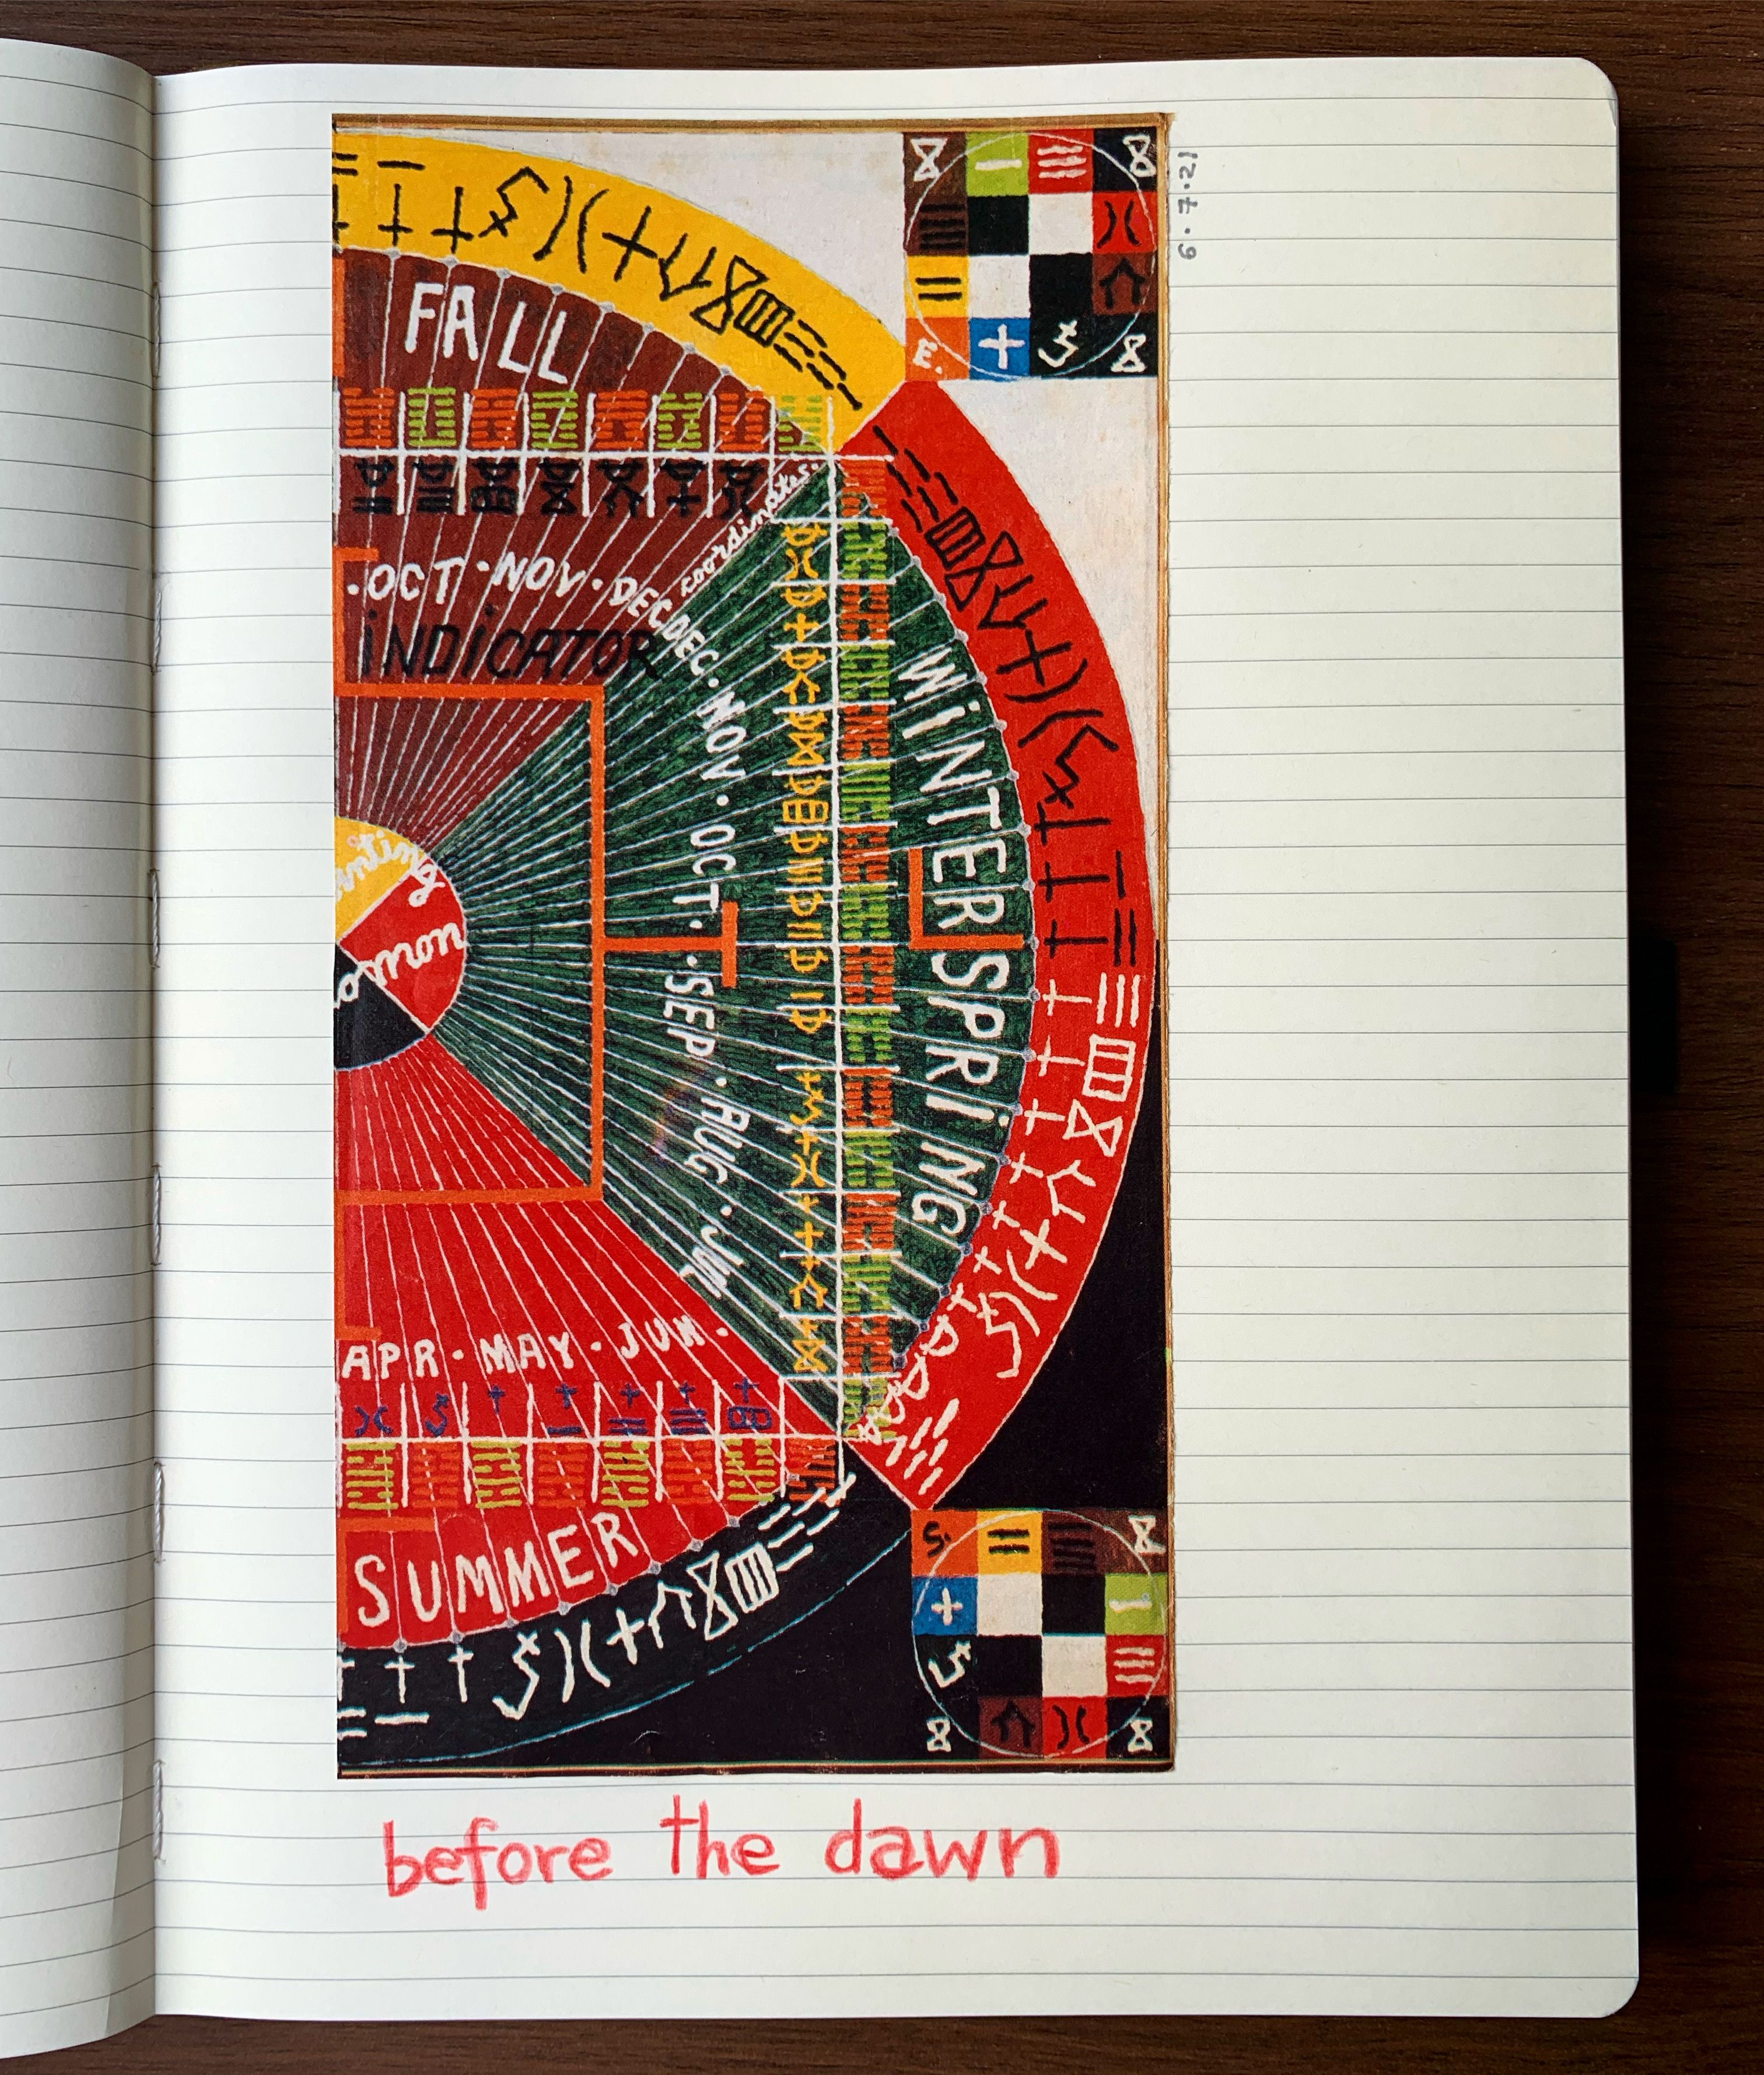 6·7·21
E.
FALL
coordinates
·OCT·NOV·DEC
INDICATOR
DEC·NOV·OCT·SEP·AUG·JUL
WINTER SPRING
nting
now
APR·MAY·JUN·
SUMMER
S.
before the dawn